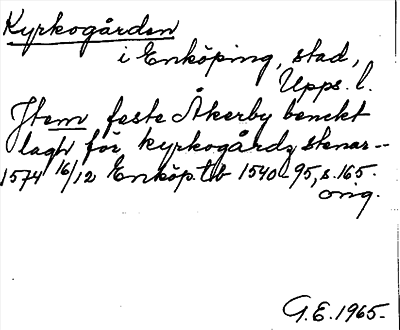 Kyrkogården
i Enköping, stad,
Upps. l.
Jtem feste Åkerby benckt
lagh för kyrkogårdz stenar--
1574 16/12 Enköp. tb 1540-95, s. 165.
orig.
G.E. 1965-